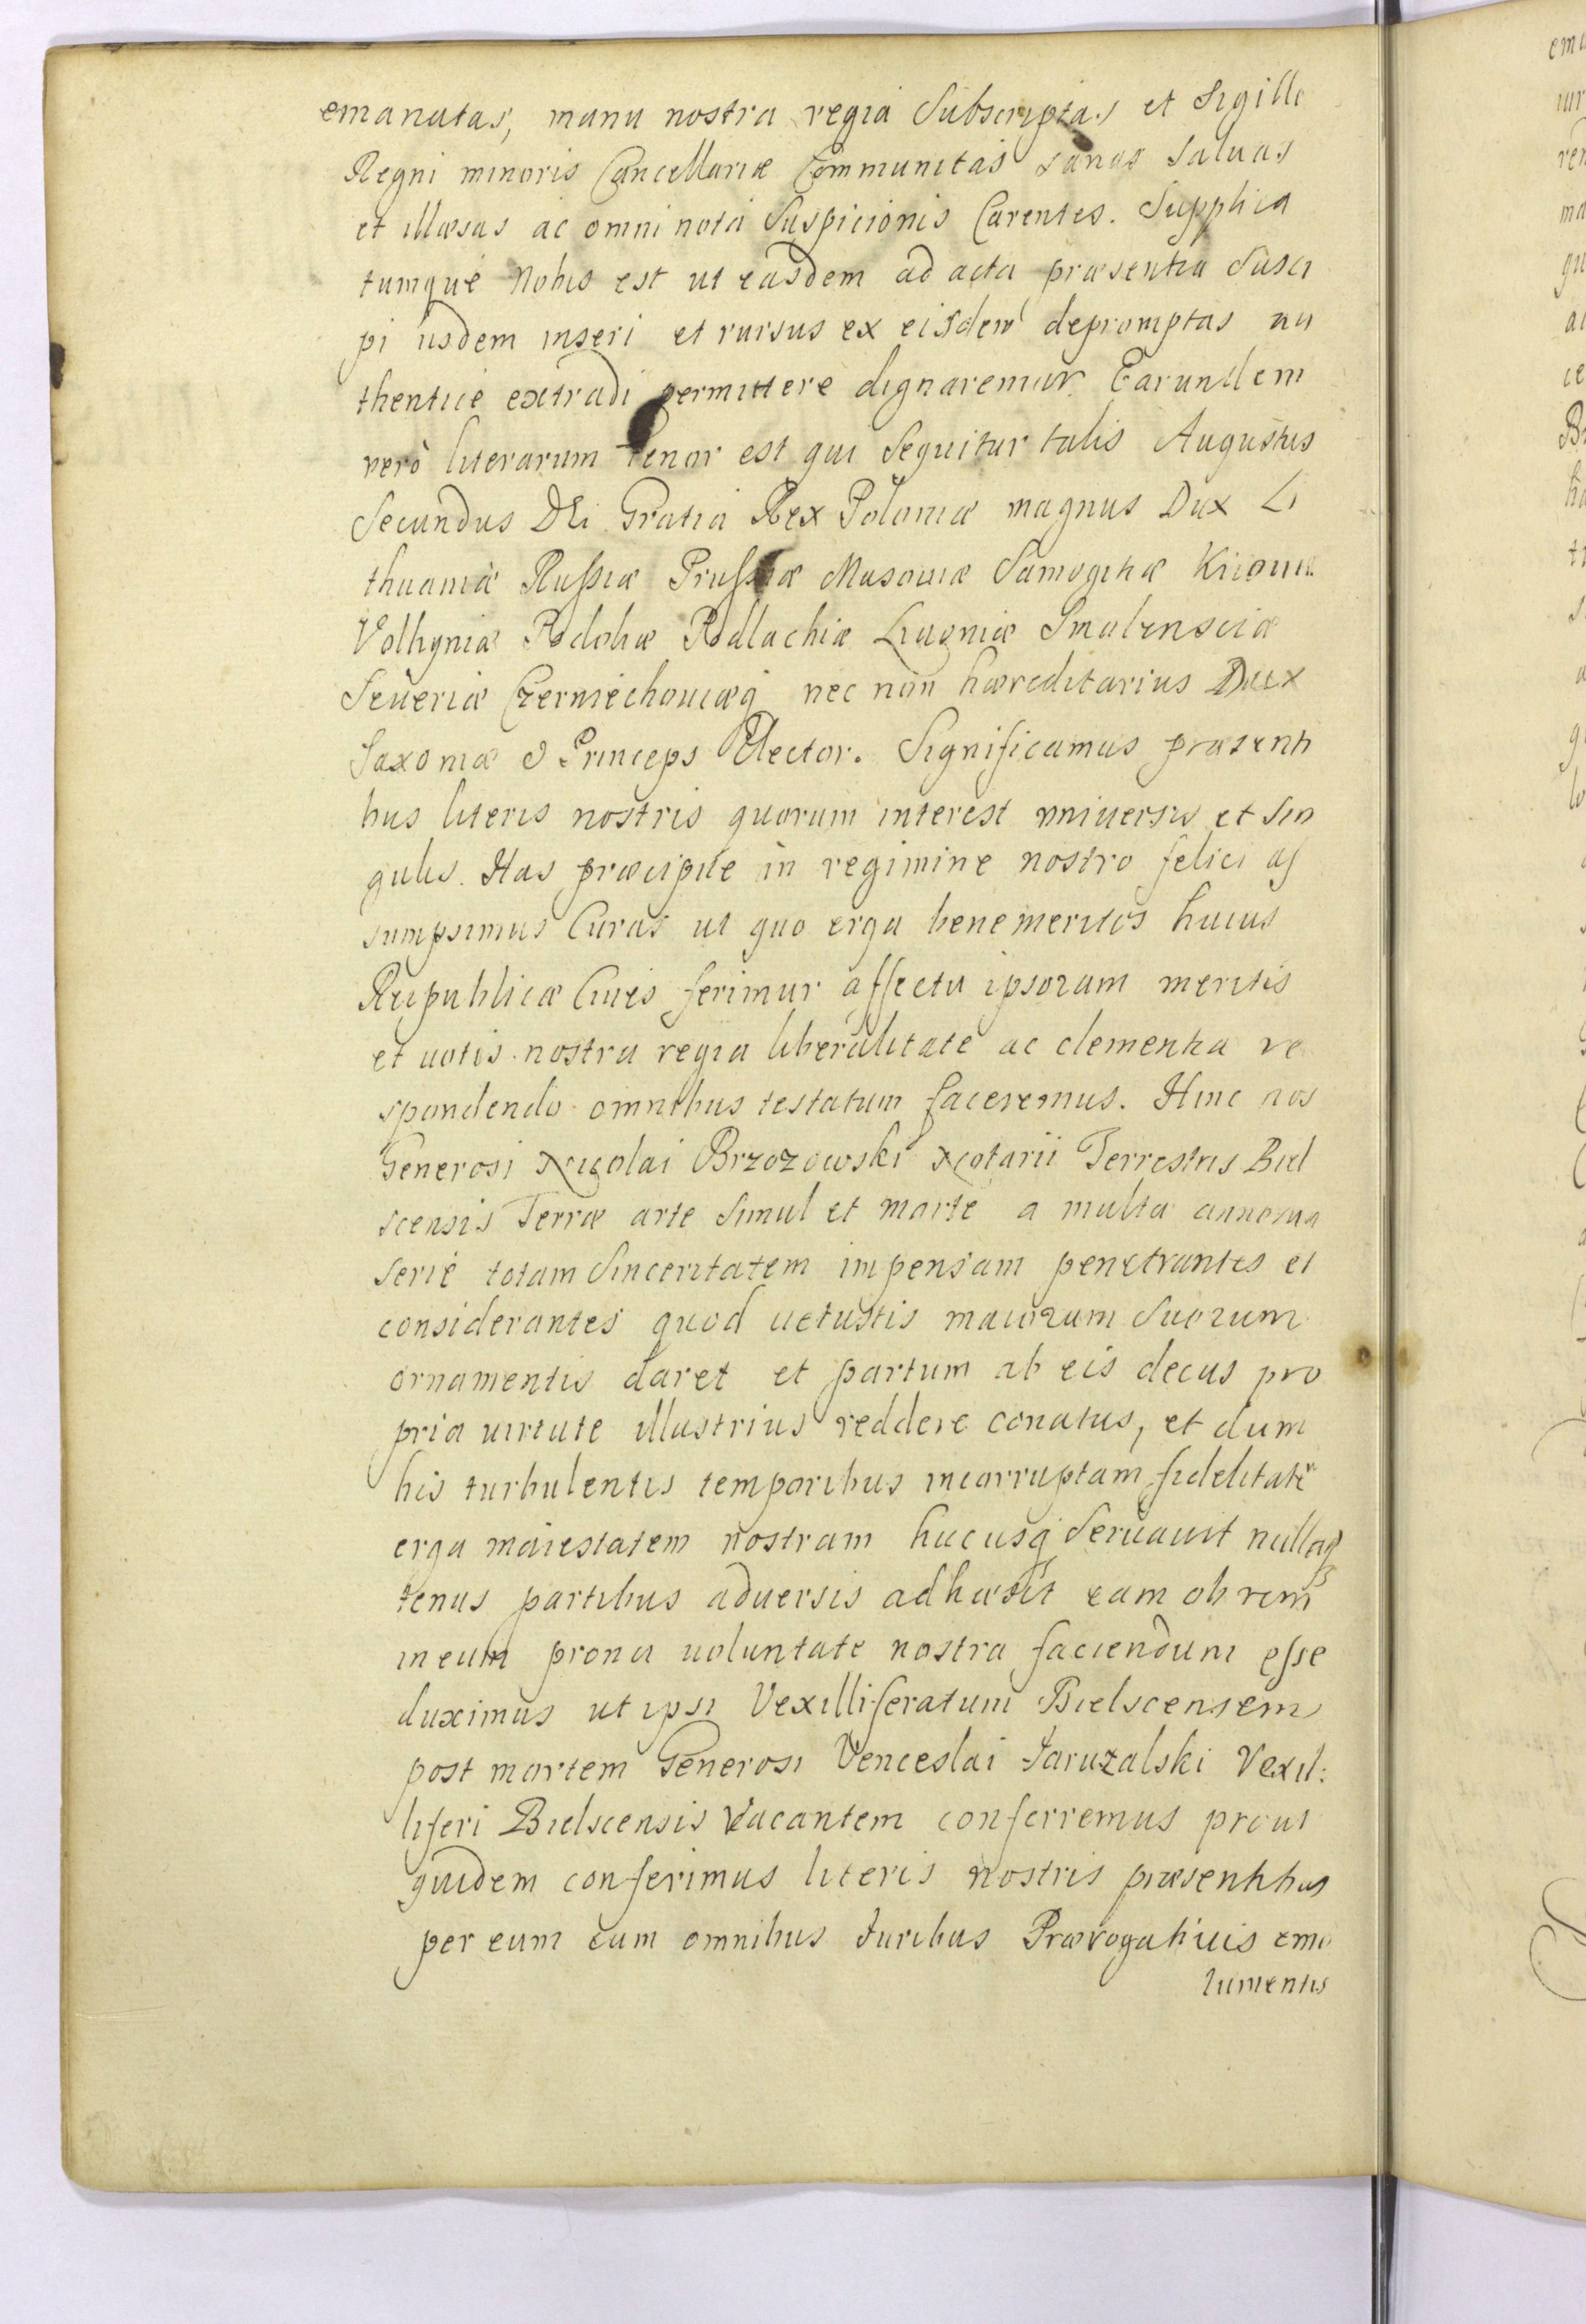 emanatas, manu nostra regia Subscriptas et Sigillo
Regni minoris Cancellariæ Communitas sanas saluas
et illæsas ac omni nota Suspicionis Carentes. Supplica
tumque Nobis est ut easdem ad acta præsentia Susci
pi iisdem inseri et rursus ex eisdem depromptas au
thentice extradi permittere dignaremur. Earundem
verò literarum tenor est qui Sequitur talis Augustus
Secundus DEi Gratia Rex Poloniæ magnus Dux Li
thuaniæ Russiæ Prussiæ Masouiæ Samogitiæ Kiiouiæ
Volhyniæ Podoliæ Podlachiæ Liuoniæ Smolensciæ
Seueriæ Czerniechouiæq nec non hæreditarius Dux
Saxoniæ & Princeps Elector. Significamus præsenti
bus literis nostris quorum interest vniuersis et Sin
gulis. Has præcipue in regimine nostro felici as
sumpsimus Curas ut quo erga bene meritos huius
Reipublicæ Ciues ferimur affectu ipsorum meritis
et uotis nostra regia liberalitate ac clementia re
spondendo omnibus testatum faceremus. Hinc nos
Generosi Nicolai Brzozowski Notarii Terrestris Biel
scensis Terræ arte Simul et marte a multa annorum
Serie totam Sinceritatem impensam penetrantes et
considerantes quod uetustis maiorum Suorum
ornamentis daret et partum ab eis decus pro
pria uirtute illustrius reddere conatus, et dum
his turbulentis temporibus incorruptam fidelitatē
erga maiestatem nostram hucusq Seruauit nullaq
tenus partibus aduersis adhæsit eam ob rem
in eum prona uoluntate nostra faciendum esse
duximus ut ipsi Vexilliferatum Bielscensem
post mortem Generosi Venceslai Jaruzalski Vexil:
liferi Bielscensis Vacantem conferremus prout
quidem conferimus literis nostris præsentibus
per eum cum omnibus Juribus Prærogatiuis emo
lumentis